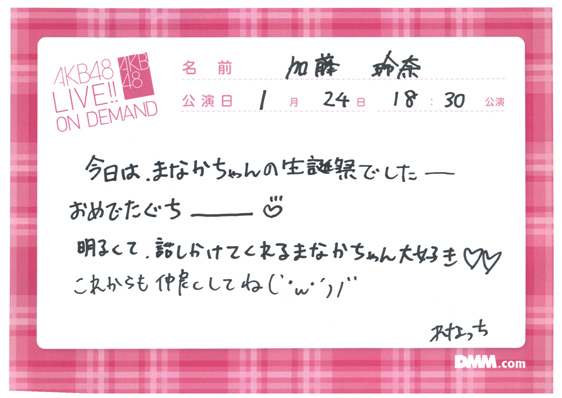 AKB48
LIVE!!
ON DEMAND
AKB
48
名前 加藤 玲奈
公演日 1月 24日 18:30 公演
今日は、まなかちゃんの生誕祭でしたー
おめでたぐちーーー♡
明るくて、話しかけてくれるまなかちゃん大好き♡♡
これからも仲良くしてね(`･ω･´)ﾉ
DMM.com